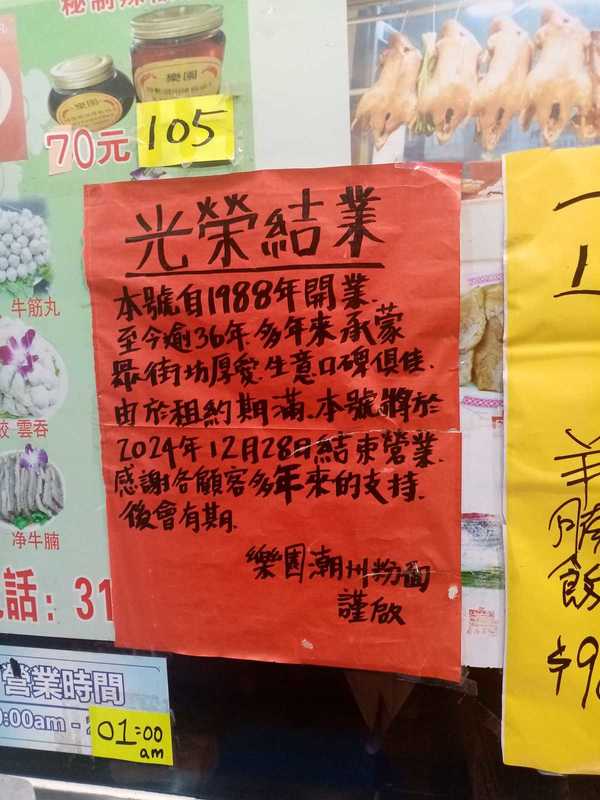 秘制辣
樂園
樂園
70元
105
光榮結業
本號自1988年開業.
至今逾36年.多年來承蒙
眾街坊厚愛.生意口碑俱佳.
由於租約期滿.本號將於
2024年12月28日結束營業.
感謝各顧客多年來的支持.
後會有期.
樂園潮州粉面
謹啟
牛筋丸
雲吞
净牛腩
話: 31
營業時間
:00am -
01:00
am
羊
腩
飯
$9